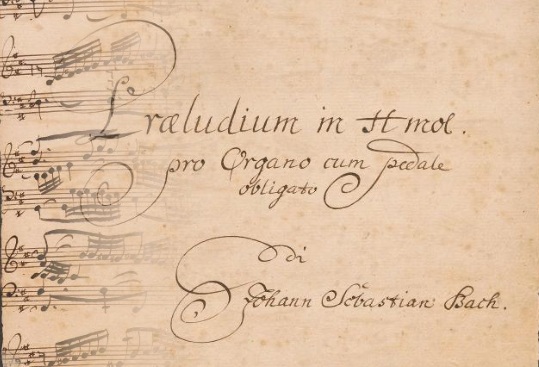 Præludium in H mol.
pro Organo cum pedale
obligato
di
Johann Sebastian Bach.